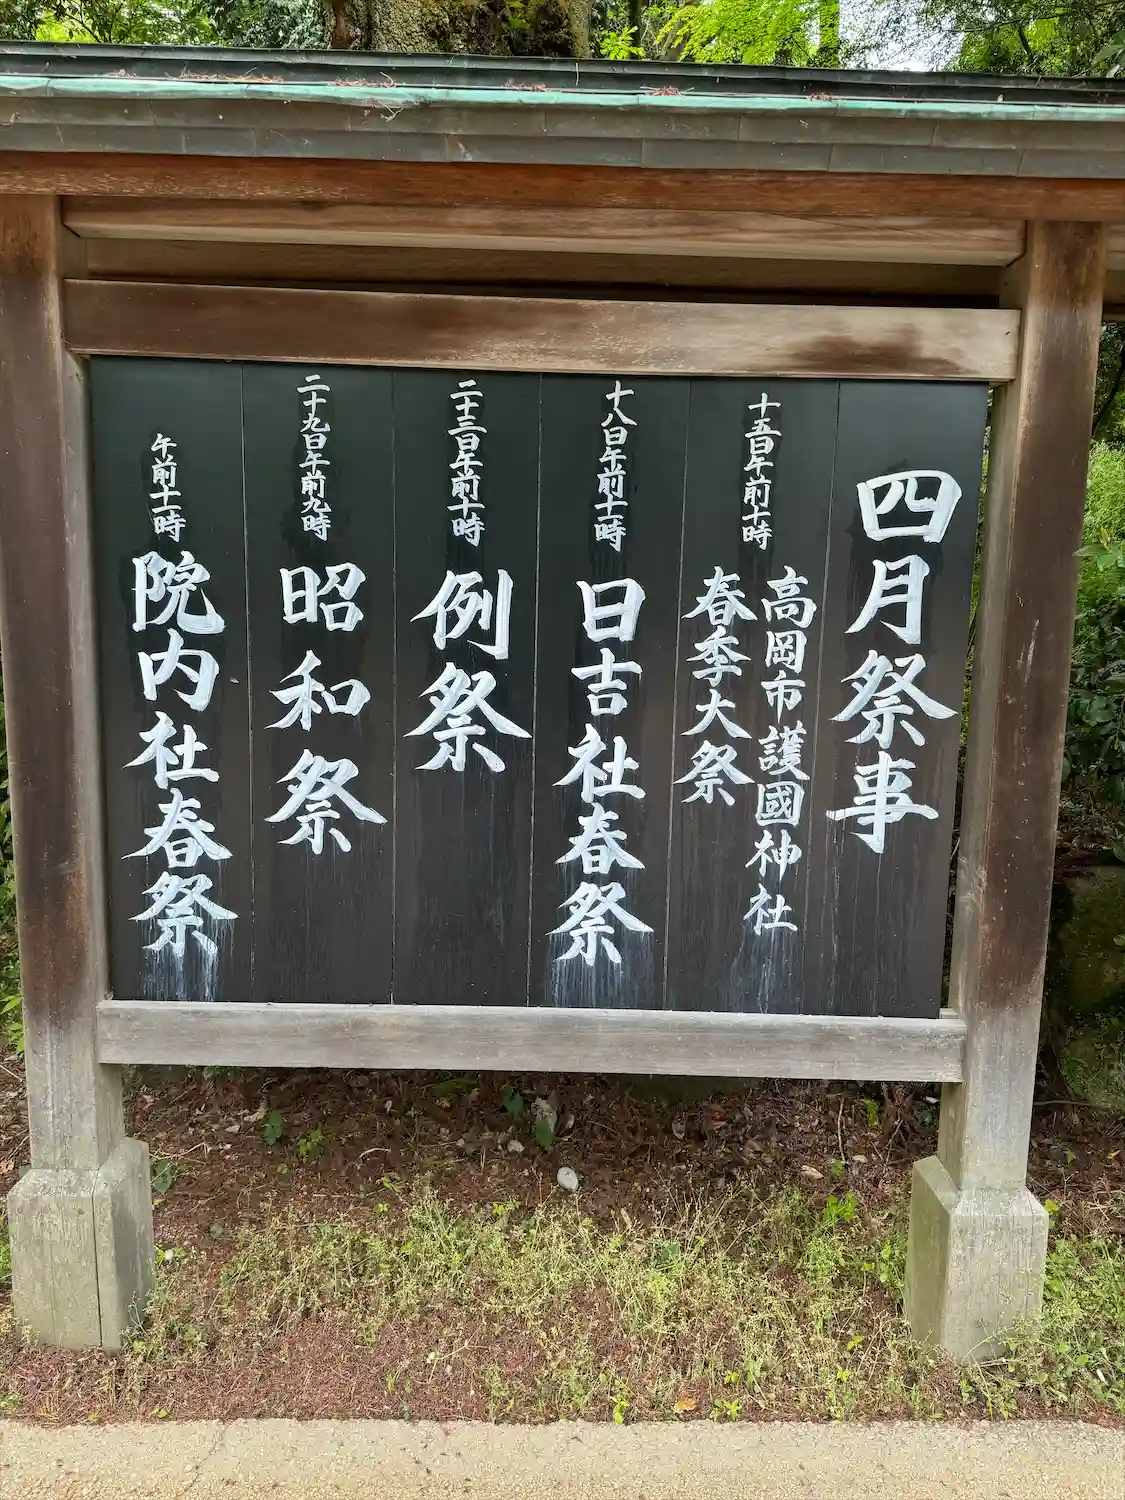 四月祭事
十五日午前十時
高岡市護國神社
春季大祭
十八日午前十一時
日吉社春祭
二十三日午前十時
例祭
二十九日午前九時
昭和祭
午前十一時
院内社春祭